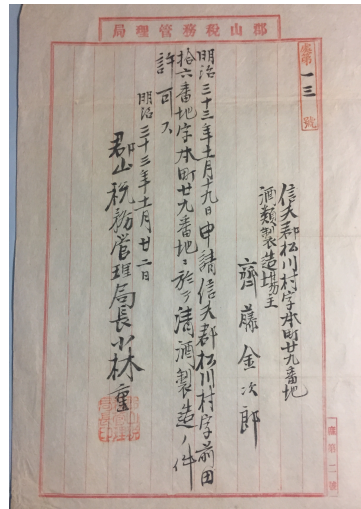 郡山税務管理局
處第一三號
信夫郡松川村字本町廿九番地
酒類製造場主
齊藤金次郎
明治三十三年十一月十九日申請信夫郡松川村字前田
拾六番地字本町廿九番地ニ於テ清酒製造ノ件
許可ス
明治三十三年十一月廿二日
郡山税務管理局長小林